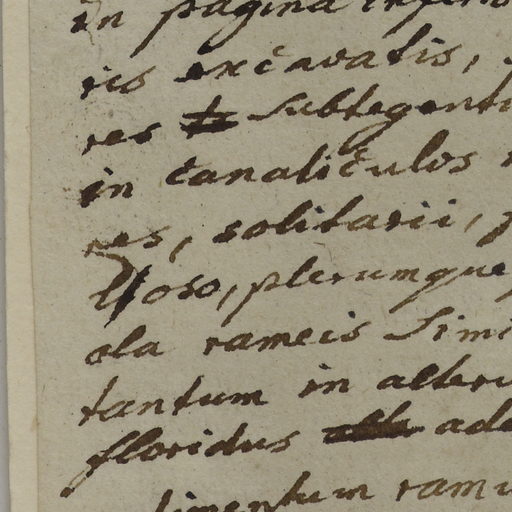 in pagina inferio
ris excavatis,
res subtegentu
in canaliculos
res, solitarii,
loso, plerumque
ola rameis simi
tantum in alteru
floridus ada
limentum ramu